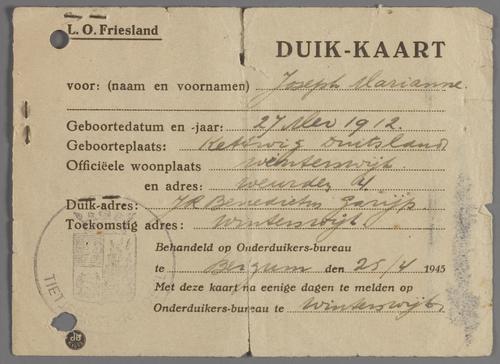 L. O. Friesland
DUIK-KAART
voor: (naam en voornamen) Joseph Marianne.
Geboortedatum en -jaar: 27 Mei 1912.
Geboorteplaats: Kettwig Duitsland
Officiëele woonplaats Winterswijk
en adres: Meurdes
Duik-adres: Benedictus Garijp
Toekomstig adres: Winterswijk
Behandeld op Onderduikers-bureau
te Bergum den 25/4 1945
Met deze kaart na eenige dagen te melden op
Onderduikers-bureau te Winterswijk
TIET